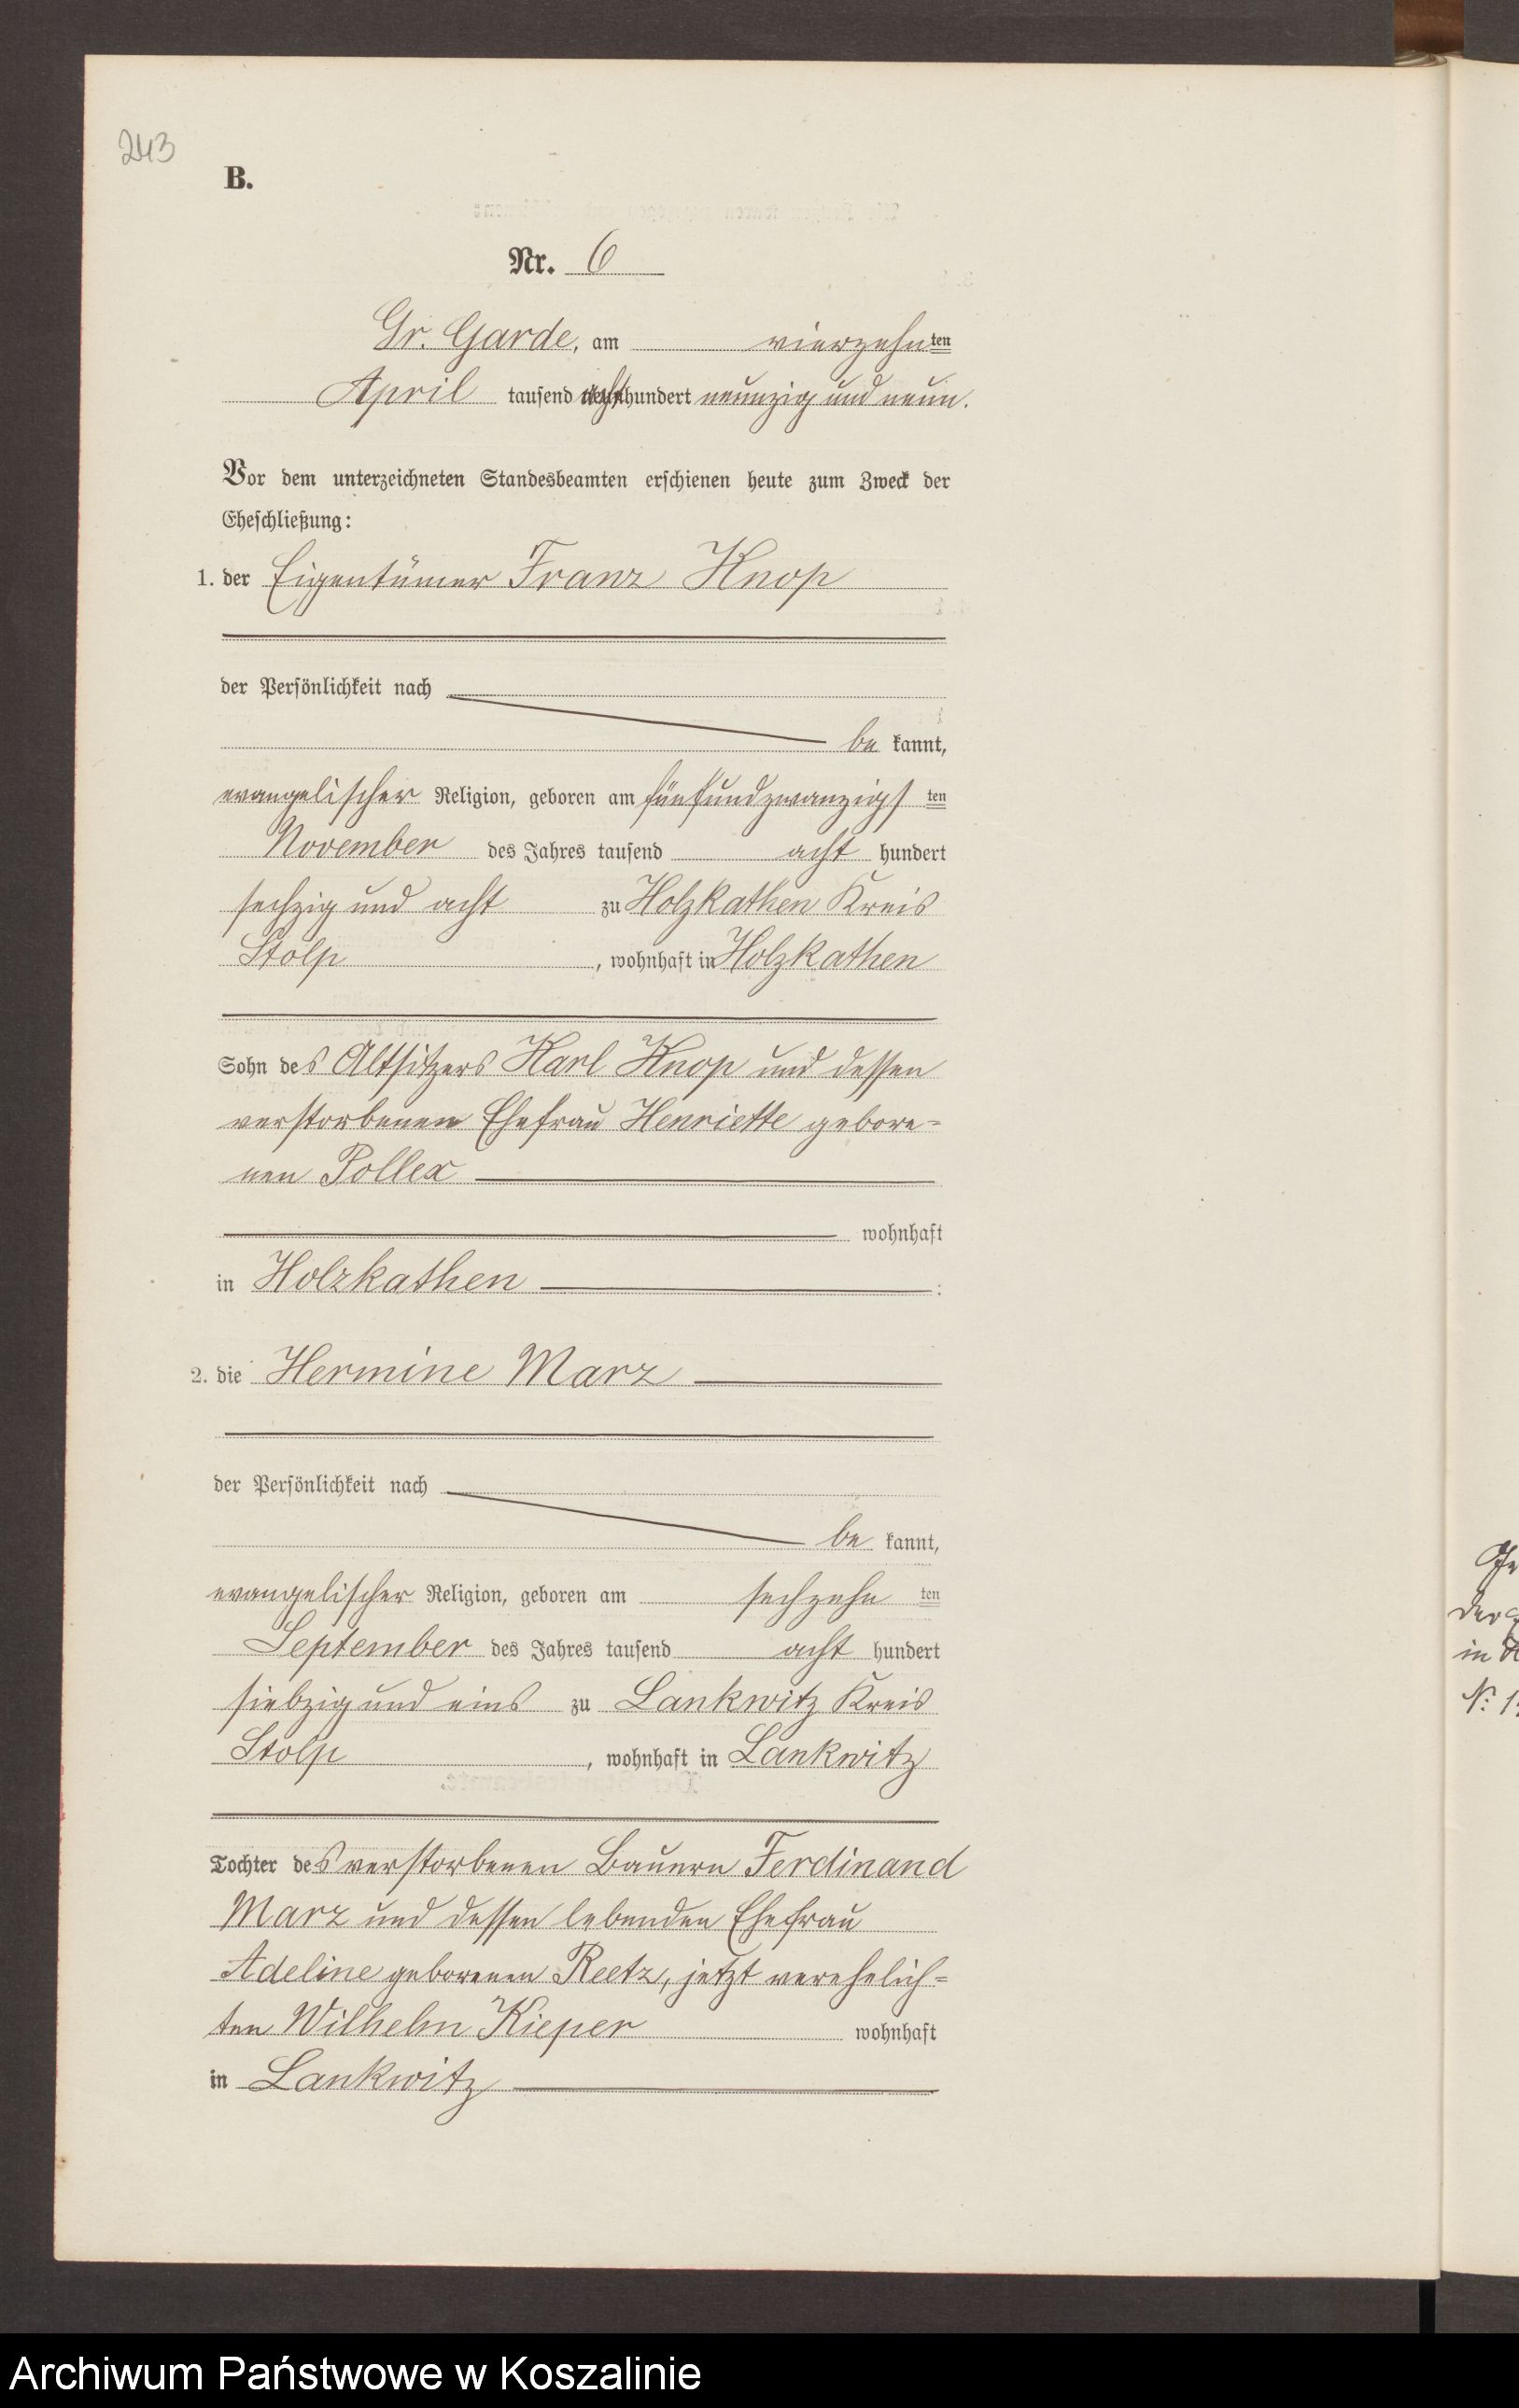 243
B.
Nr. 6
Gr. Garde, am vierzehnten
April tausend achthundert neunzig und neun.
Vor dem unterzeichneten Standesbeamten erschienen heute zum Zweck der
Eheschließung:
1. der Eigentümer Franz Knop
der Persönlichkeit nach
be kannt,
evangelischer Religion, geboren am fünfundzwanzigsten
November des Jahres tausend acht hundert
sechzig und acht zu Holzkathen Kreis
Stolp, wohnhaft in Holzkathen
Sohn des Altsitzers Karl Knop und dessen
verstorbenen Ehefrau Henriette gebore-
nen Pollex
wohnhaft
in Holzkathen :
2. die Hermine Marz
der Persönlichkeit nach
be kannt,
evangelischer Religion, geboren am sechzehn ten
September des Jahres tausend acht hundert
siebzig und eins zu Lankwitz Kreis
Stolp, wohnhaft in Lankwitz
Tochter des verstorbenen Bauern Ferdinand
Marz und dessen lebenden Ehefrau
Adeline geborenen Reetz, jetzt verehelich-
ten Wilhelm Kieper wohnhaft
in Lankwitz
in
Archiwum Państwowe w Koszalinie